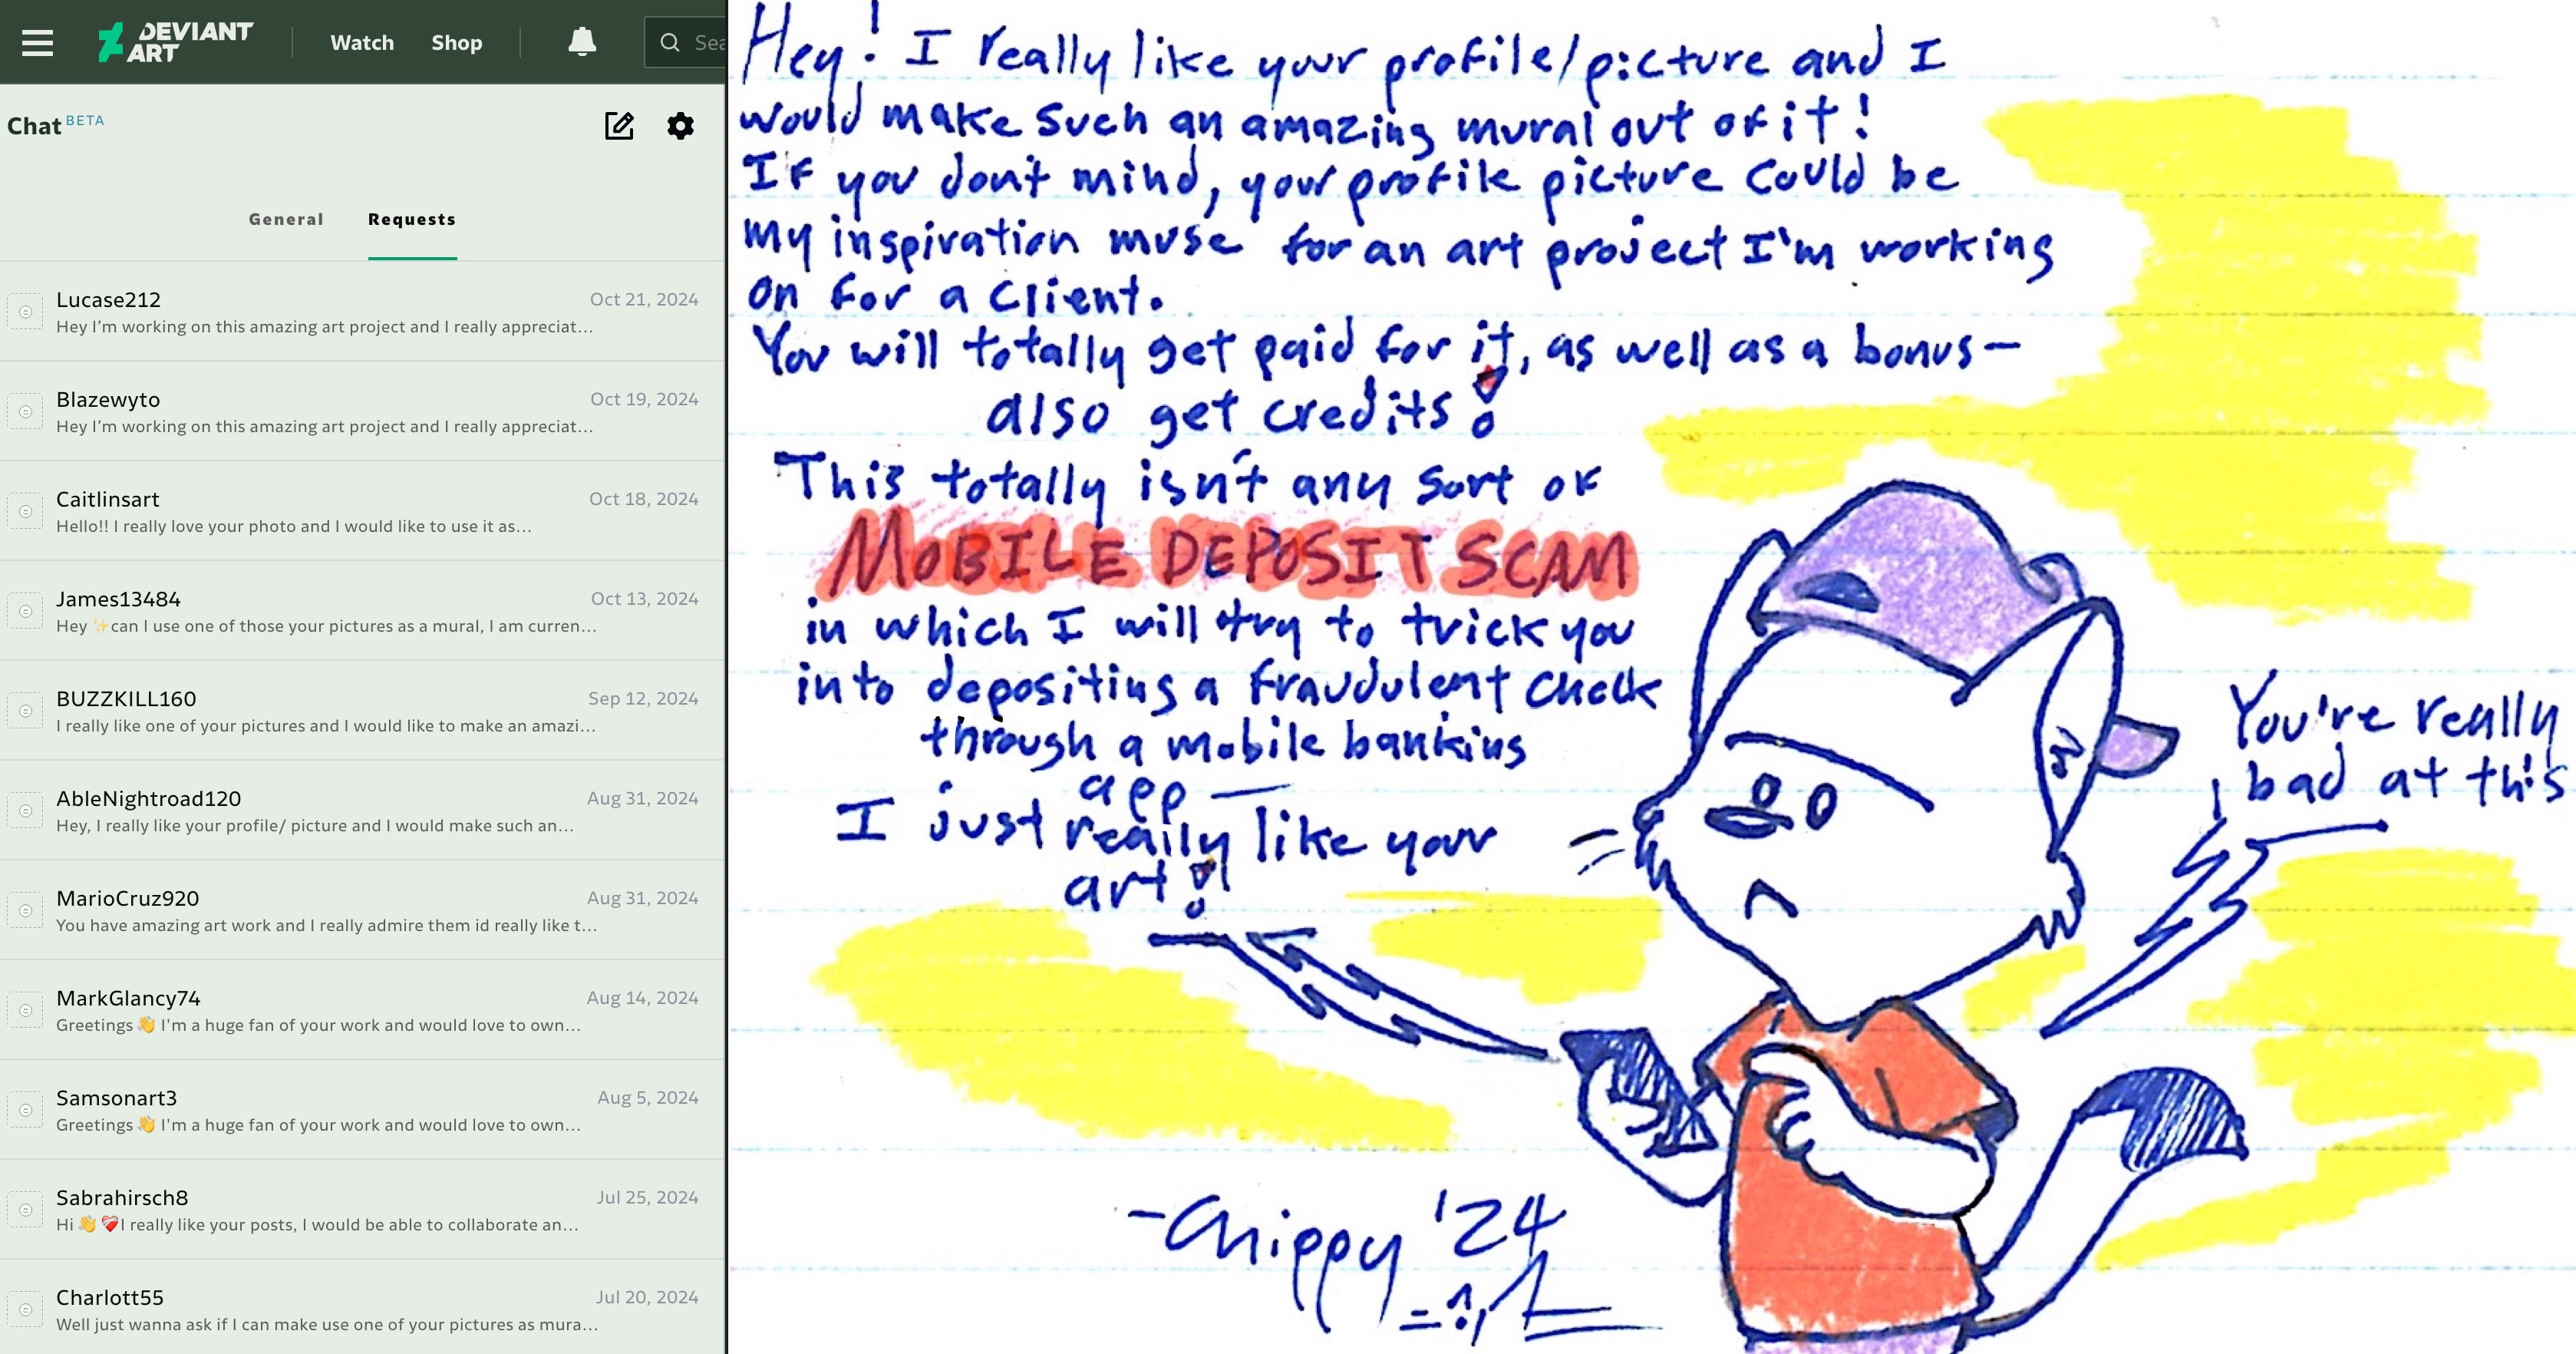 DEVIANT
ART
Watch
Shop
Sea
Chat BETA
General
Requests
Lucase212
Oct 21, 2024
Hey I’m working on this amazing art project and I really appreciat...
Blazewyto
Oct 19, 2024
Hey I’m working on this amazing art project and I really appreciat...
Caitlinsart
Oct 18, 2024
Hello!! I really love your photo and I would like to use it as...
James13484
Oct 13, 2024
Hey ✨can I use one of those your pictures as a mural, I am curren...
BUZZKILL160
Sep 12, 2024
I really like one of your pictures and I would like to make an amazi...
AbleNightroad120
Aug 31, 2024
Hey, I really like your profile/ picture and I would make such an...
MarioCruz920
Aug 31, 2024
You have amazing art work and I really admire them id really like t...
MarkGlancy74
Aug 14, 2024
Greetings 👋 I'm a huge fan of your work and would love to own...
Samsonart3
Aug 5, 2024
Greetings 👋 I'm a huge fan of your work and would love to own...
Sabrahirsch8
Jul 25, 2024
Hi 👋 ❤️‍🩹I really like your posts, I would be able to collaborate an...
Charlott55
Jul 20, 2024
Well just wanna ask if I can make use one of your pictures as mura...
Hey! I really like your profile/picture and I
would make such an amazing mural out of it!
If you dont mind, your profile picture could be
my inspiration muse for an art project I'm working
on for a client.
You will totally get paid for it, as well as a bonus—
also get credits!
This totally isn't any sort of
MOBILE DEPOSIT SCAM
in which I will try to trick you
into depositing a fraudulent check
through a mobile banking
app —
I just really like your
art!
You're really
bad at this
-Chippy '24